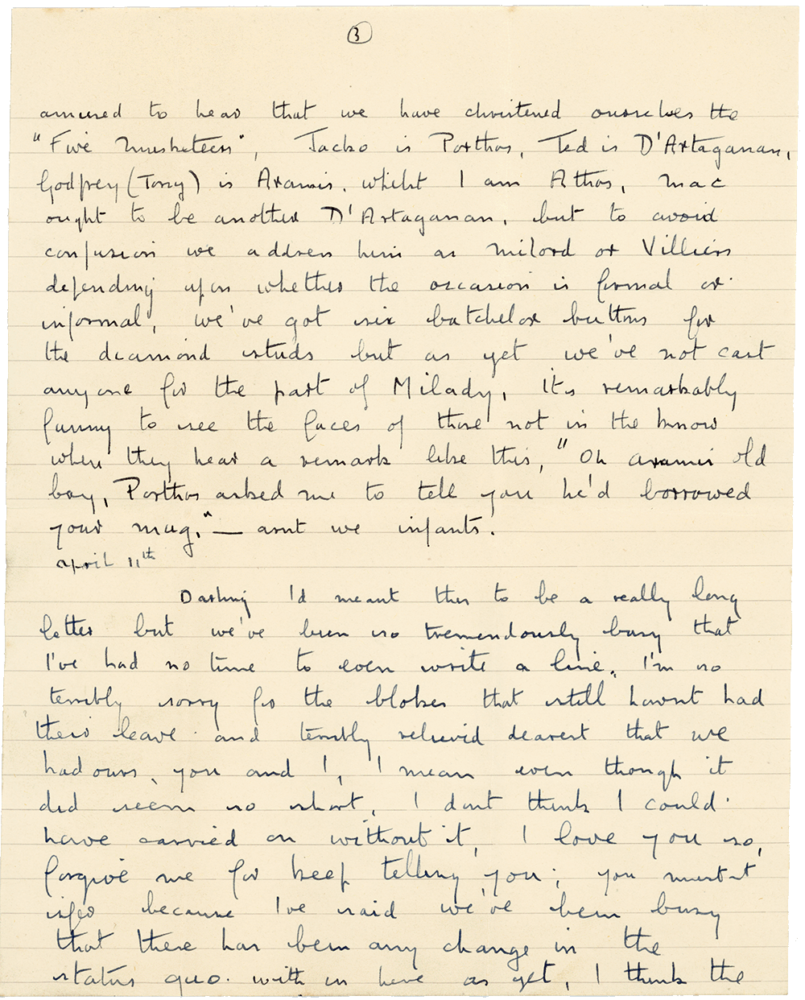 3
amused to hear that we have christened ourselves the
"Five Musketeers", Jacko is Porthos, Ted is D'Artaganan,
Godfrey (Tony) is Aramis, whilst I am Athos, Mac
ought to be another D'Artaganan, but to avoid
confusion we address him as Milord or Villiers
depending upon whether the occasion is formal or
informal, we've got six batchelor buttons for
the diamond studs but as yet we've not cast
anyone for the part of Milady, its remarkably
funny to see the faces of those not in the know
when they hear a remark like this, "Oh Aramis old
boy, Porthos asked me to tell you he'd borrowed
your mug." — arnt we infants.
April 11th
Darling I'd meant this to be a really long
letter but we've been so tremendously busy that
I've had no time to even write a line, I'm so
terribly sorry for the blokes that still havnt had
their leave and terribly relieved dearest that we
had ours, you and I, I mean even though it
did seem so short, I dont think I could
have carried on without it, I love you so,
forgive me for keep telling you; you mustn't
infer because I've said we've been busy
that there has been any change in the
status quo. with us here as yet, I think the